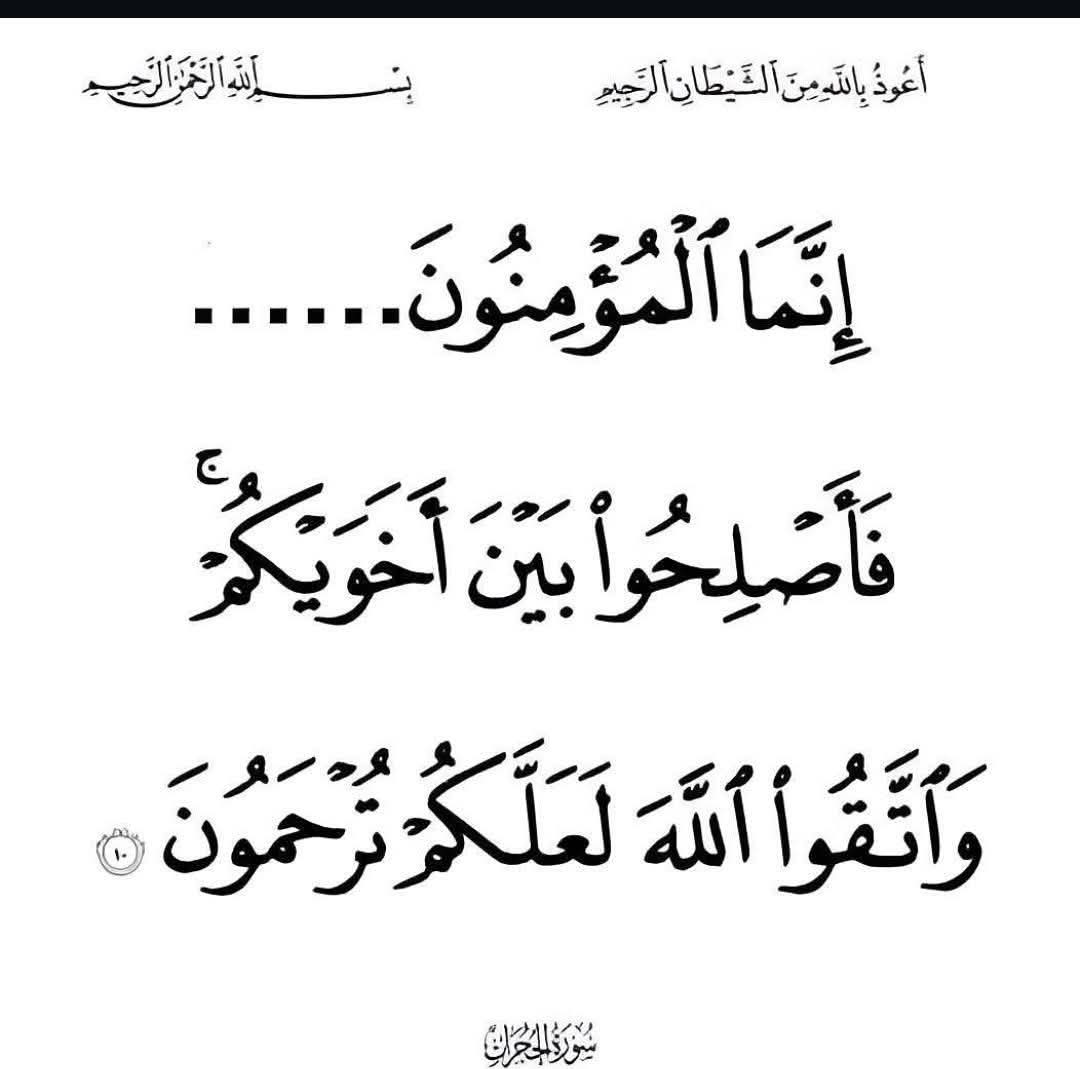 أَعُوذُ بِاللَّهِ مِنَ ٱلشَّيْطَانِ ٱلرَّجِيمِ
بِسْمِ ٱللَّهِ ٱلرَّحْمَٰنِ ٱلرَّحِيمِ
إِنَّمَا ٱلْمُؤْمِنُونَ......
فَأَصْلِحُوا۟ بَيْنَ أَخَوَيْكُمْ ۚ
وَٱتَّقُوا۟ ٱللَّهَ لَعَلَّكُمْ تُرْحَمُونَ ١٠
سُورَةُ الحُجُرَاتِ